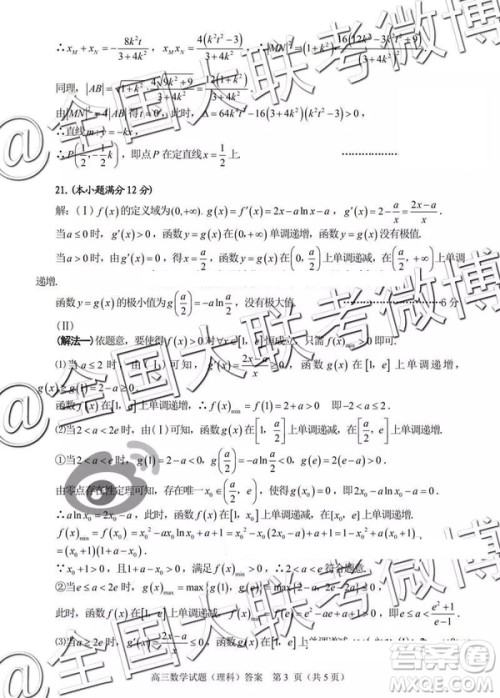 ∴x_M+x_N=-8k²t/(3+4k²), x_M x_N=4(k²t²-3)/(3+4k²).
同理,
由|MN|²=4|AB|得t=0, 此时, Δ=64k⁴-16(3+4k²)(k²t²-3)>0,
∴直线m:y=-kx,
∴P(1/2,-1/2k), 即点P在定直线x=1/2上.
21.(本小题满分12分)
解:(Ⅰ)f(x)的定义域为(0,+∞). g(x)=f′(x)=2x-alnx-a, g′(x)=2-a/x=(2x-a)/x.
当a≤0时, g′(x)>0, 函数y=g(x)在(0,+∞)单调递增, 函数y=g(x)没有极值.
当a>0时, 由g′(x)=0, 得x=a/2, 函数y=g(x)在(0,a/2)上单调递减, 在(a/2,+∞)上单调递增.
函数y=g(x)的极小值为g(a/2)=-aln a/2, 没有极大值. 6分
(Ⅱ)
(解法一)依题意, 要使得f(x)>0对∀x∈[1,e]恒成立, 只需f(x)min>0即可.
(1)当a≤2时, 由(Ⅰ)可知, 函数g′(x)=(2x-a)/x≥0, 函数g(x)在[1,e]上单调递增,
g(x)≥g(1)=2-a≥0,
函数f(x)在[1,e]上单调递增, ∴f(x)min=f(1)=2+a>0 即-2<a≤2.
(2)当2<a<2e时, 由(Ⅰ)可知, 函数g(x)在[1,a/2]上单调递减, 在[a/2,e]上单调递增.
①当2<a<e时, g(1)=2-a<0, g(a/2)=-aln a/2<0, g(e)=2(e-a)>0.
由零点存在性定理可知, 存在唯一x₀∈(a/2,e), 使得g(x₀)=0, 即2x₀-alnx₀-a=0.
∴alnx₀=2x₀-a, 此时, 函数f(x)在[1,x₀]上单调递减, 在[x₀,e]上单调递增.
f(x)min=f(x₀)=x₀²-ax₀lnx₀+a+1=x₀²-x₀(2x₀-a)+a+1=-x₀²+ax₀+a+1
=(x₀+1)(1+a-x₀).
∴x₀+1>0, 1+a-x₀>0, 满足f(x)min>0, ∴2<a<e符合题意.
②当e≤a<2e时, g(x)max=max{g(1),g(e)}=max{2-a,2e-2a}≤0,
此时, 函数f(x)在[1,e]上单调递减, ∴f(x)min=f(e)>0, ∴e≤a<(e²+1)/(e-1).
(3)当a≥2e时, g′(x)=(2x-a)/x
高三数学试题(理科)答案 第3页(共5页)
@全国大联考微博
@全国大联考微博
@全国大联考微博
答案圈